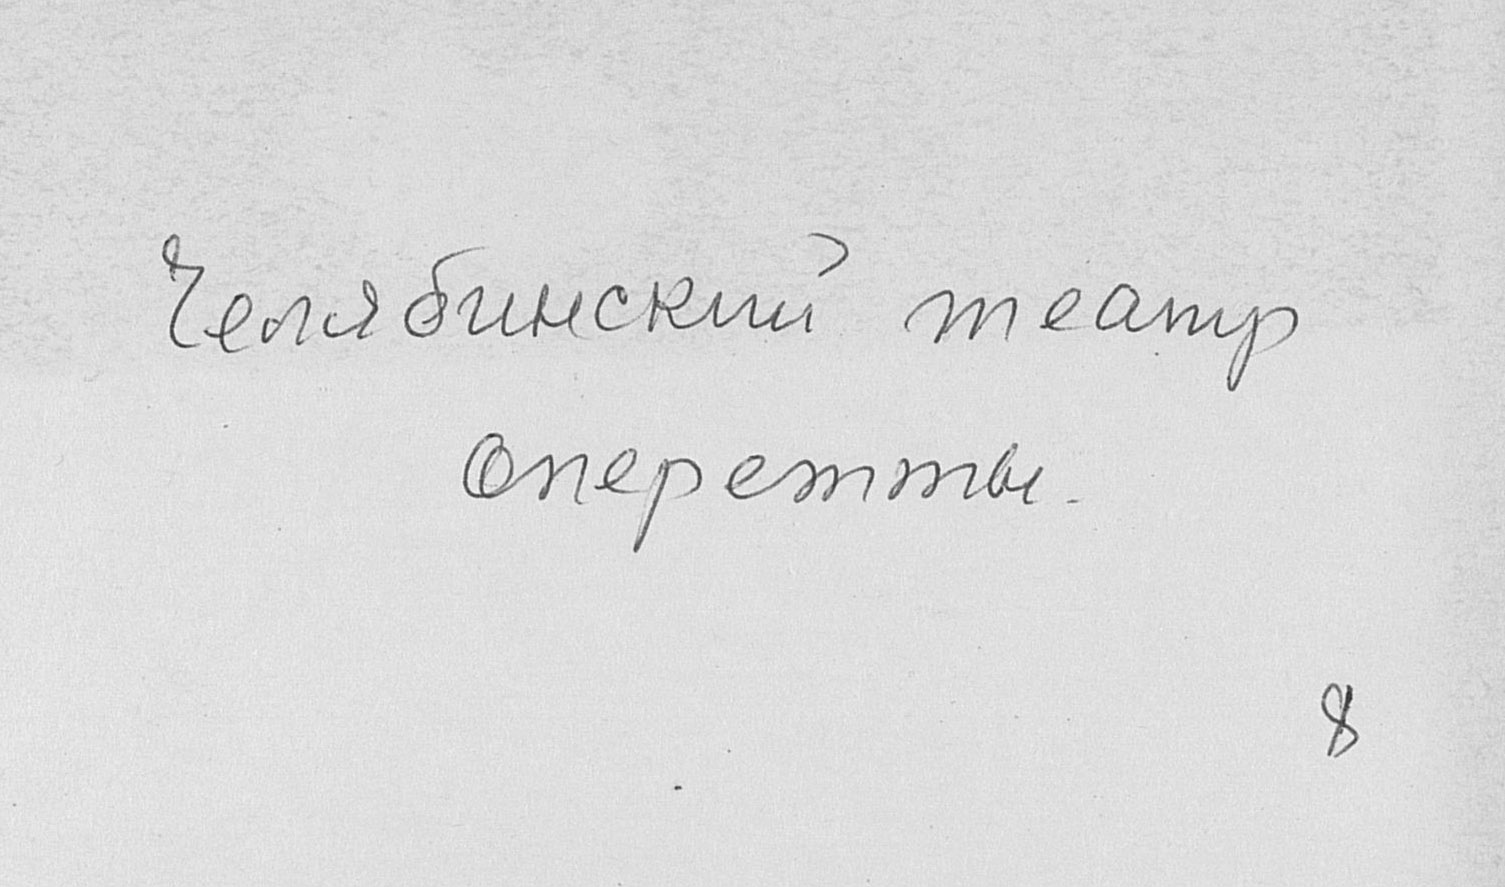 Челябинский театр
Оперетты.
8